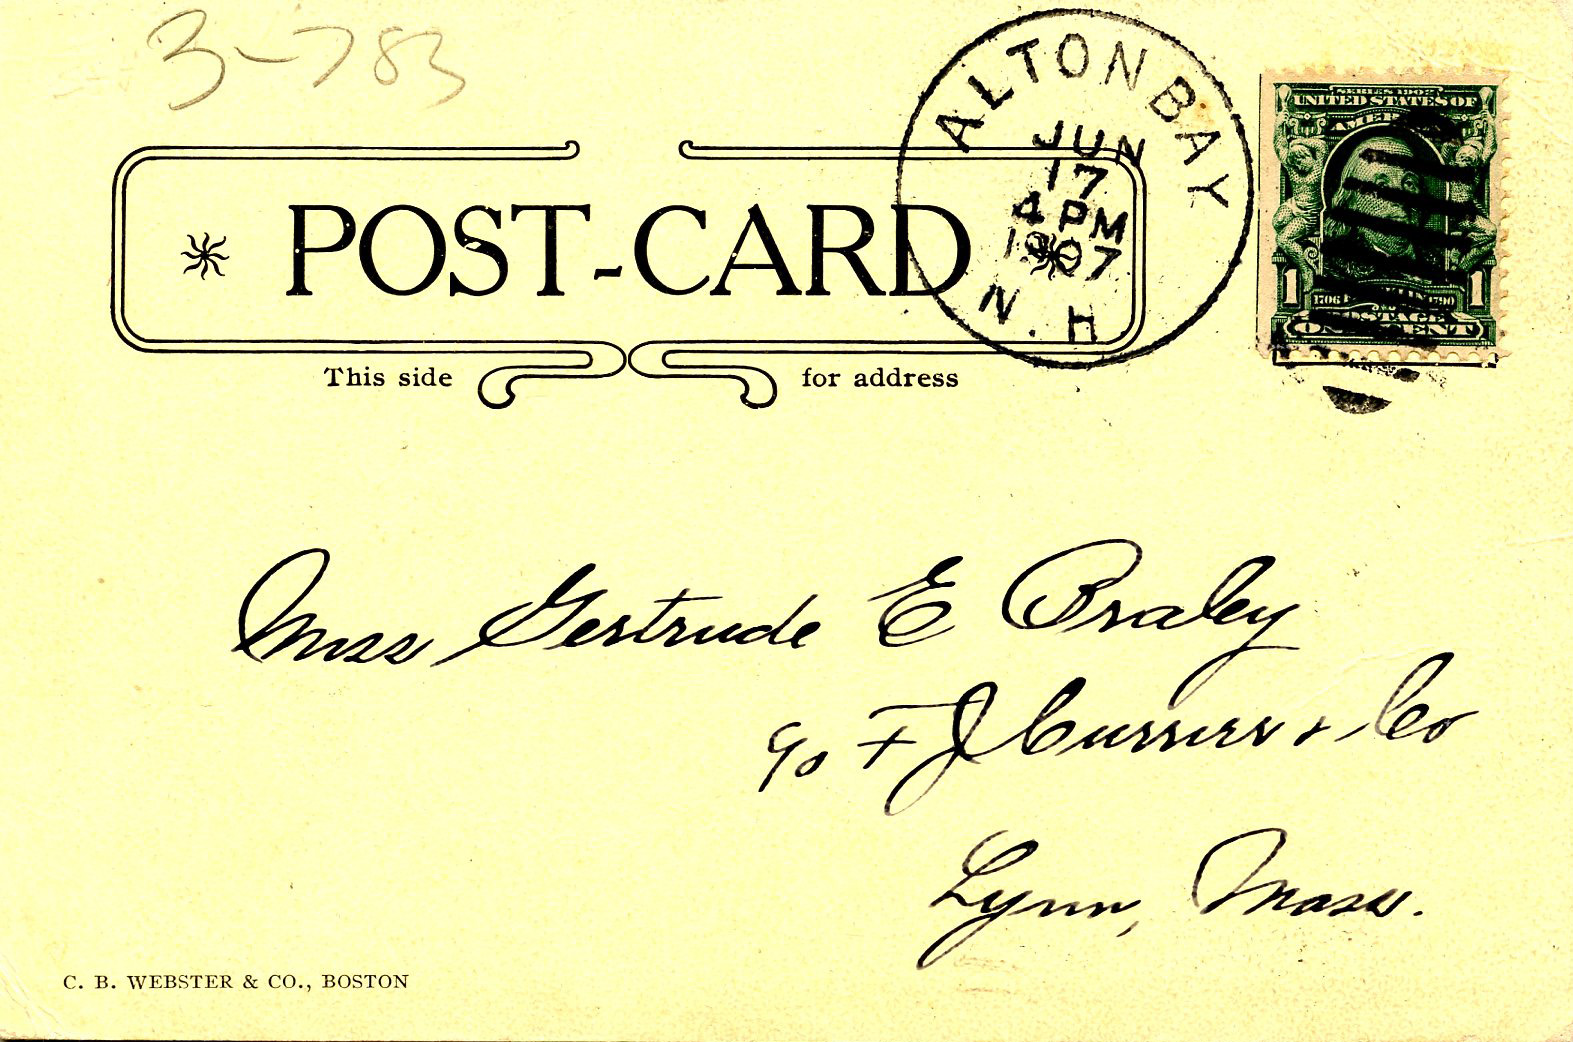 3-783
ALTON BAY
JUN
17
4 PM
1907
N.H.
SERIES 1902
UNITED STATES OF
AMERICA
1706 FRANKLIN 1790
1 1
POSTAGE
ONE CENT
POST-CARD
This side for address
Miss Gertrude E Braley
c/o F J Currier & Co
Lynn, Mass.
C. B. WEBSTER & CO., BOSTON